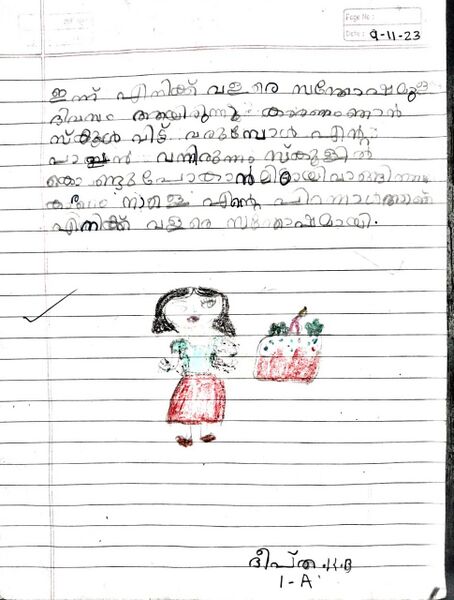 Page No :
Date : 9-11-23
ഇന്ന് എനിക്ക് വളരെ സന്തോഷമുള്ള
ദിവസം ആയിരുന്നു കാരണം ഞാൻ
സ്കൂൾ വിട്ട് വരുമ്പോൾ എന്റെ
വന്നിരുന്നു സ്കൂളിൽ
കൊണ്ടുപോകാൻ മിഠായി വാങ്ങി
നാളെ എന്റെ പിറന്നാൾ ആണ്
എനിക്ക് വളരെ സന്തോഷമായി.
ദീപ്ത .K.B
1-A